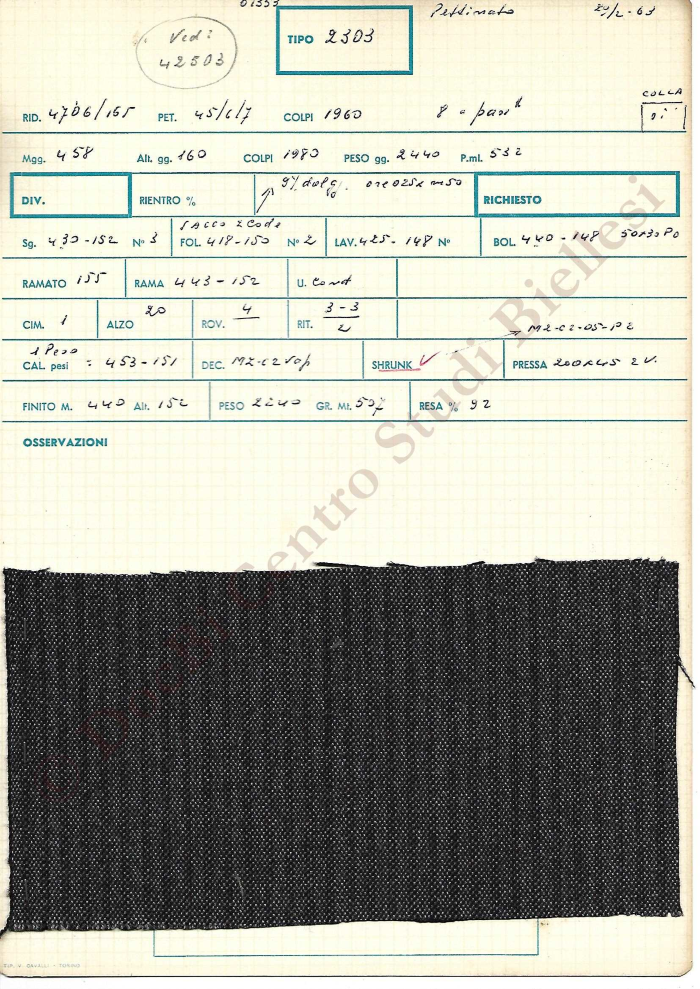 01353
Pettinato
Vedi
42503
TIPO 2303
COLLA
sì
RID. 4706/165 PET. 45/6/7 COLPI 1960
Mgg. 458 Alt. gg. 160 COLPI 1980 PESO gg. 2440 P.ml. 532
DIV. RIENTRO % RICHIESTO
SACCO 2 Code
Sg. 430-152 N° 3 FOL. 418-150 N° 2 LAV. 425-148 N° BOL. 440-148 50x30 P0
RAMATO 155 RAMA 443-152 U. Cond
CIM. 1 ALZO 20 ROV. 4 RIT. 3-3
2
M2-C2-05-P2
1 Peso
CAL. pesi = 453-151 DEC. M2-C2 Vap SHRUNK V PRESSA 200x45 2 V.
FINITO M. 440 Alt. 152 PESO 2240 GR. Mt. 507 RESA % 92
OSSERVAZIONI
© DocBi Centro Studi Biellesi
TIP. V. CAVALLI - TORINO